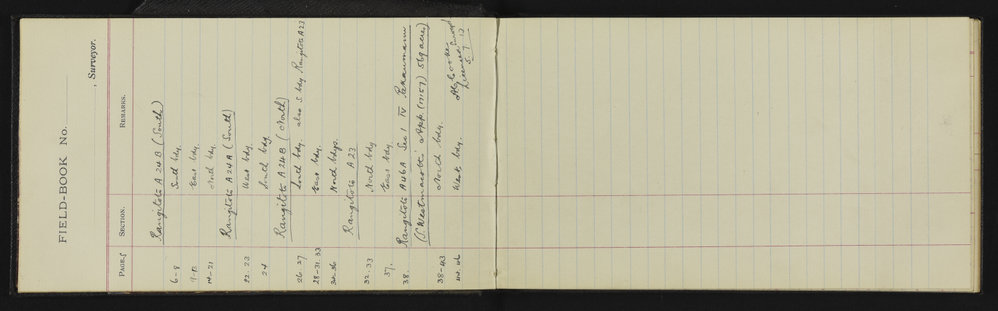 FIELD-BOOK No.
, Surveyor.
PAGE. SECTION. REMARKS.
Rangitoto A 24 B (South)
6-8 South bdy.
9-12 East bdy.
14-21 North bdy.
Rangitoto A 24 A (South)
22. 23 West bdy.
24 South bdy.
Rangitoto A 24 B (North)
26. 27 South bdy. also S. bdy Rangitoto A 23
28-31. 33 East bdy.
34-36 North bdys.
Rangitoto A 23
32. 33 North bdy
37. East bdy.
38. Rangitoto A 46 A Sec 1
(S. Westmacott's 569 acres)
38-43 North bdy.
44. 46 West bdy.
Licensed Surveyor
5. 7. 12